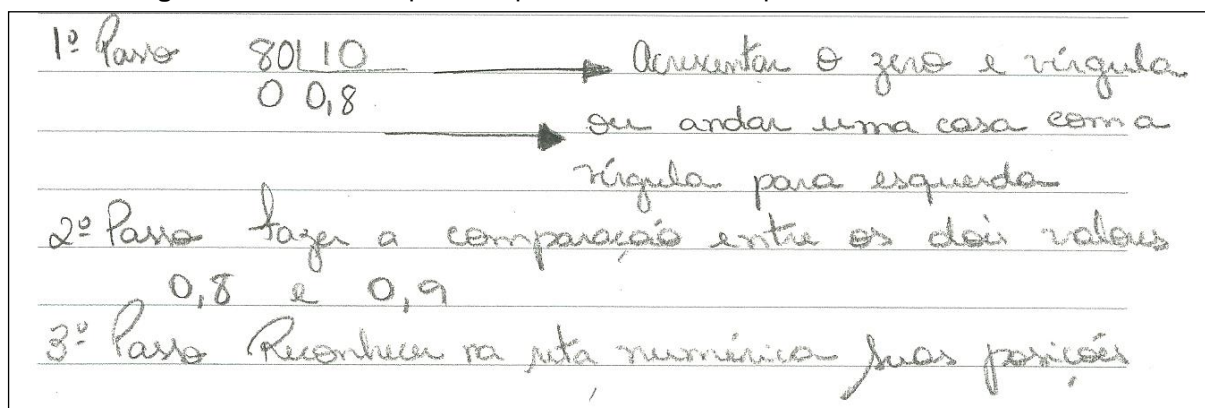 1º Passo 80 10 Acrescentar o zero e vírgula
0 0,8
ou andar uma casa com a
vírgula para esquerda
2º Passo fazer a comparação entre os dois valores
0,8 e 0,9
3º Passo Reconhecer na reta numérica suas posições